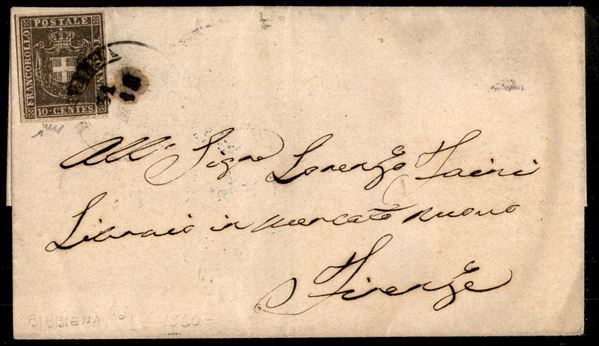 FRANCOBOLLO
POSTALE
10 CENTES
All' Sigre Lorenzo Faini
Libraio in mercato nuovo
Firenze
BIBBIENA